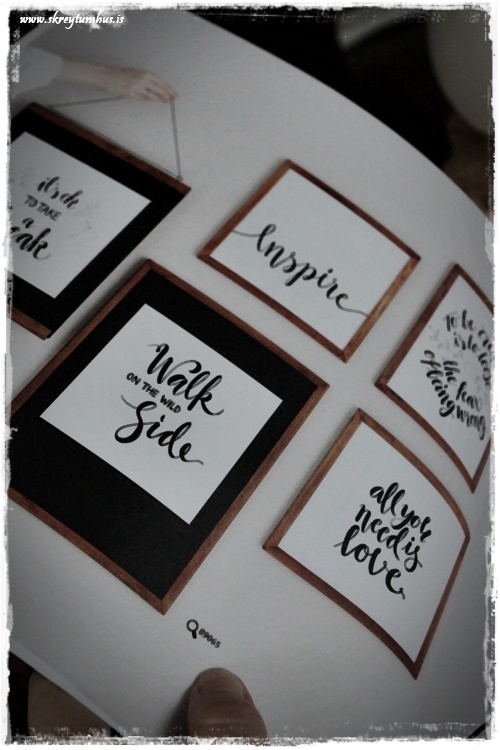 www.skreytumhus.is
it's ok
TO TAKE
a
Inspire
Walk
ON THE WILD
Side
To be
is to lose
the fear
of being wrong
all you
need is
love
89065